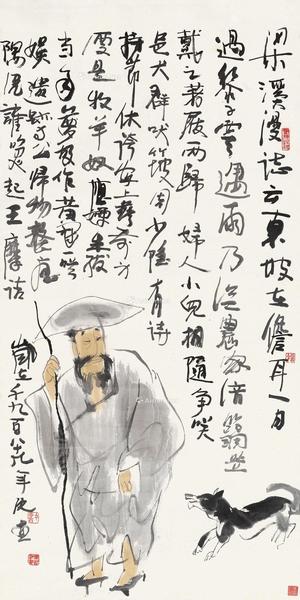 梁溪漫誌云東坡在儋耳一日
過黎子雲遇雨乃從農家借蒻笠
戴之著屐而歸婦人小兒相隨爭笑
邑犬群吠周少隱有詩
持節休誇海上蘇前身
便是牧羊奴應嫌朱紱
當年夢故作黃冠一笑
娛遺跡与公歸物
隅憑誰喚起王摩詰
年 畫